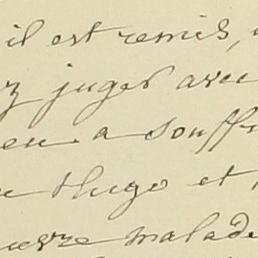 il est remis,
z juger avec
eu a souff
Hugo et
uvre malade